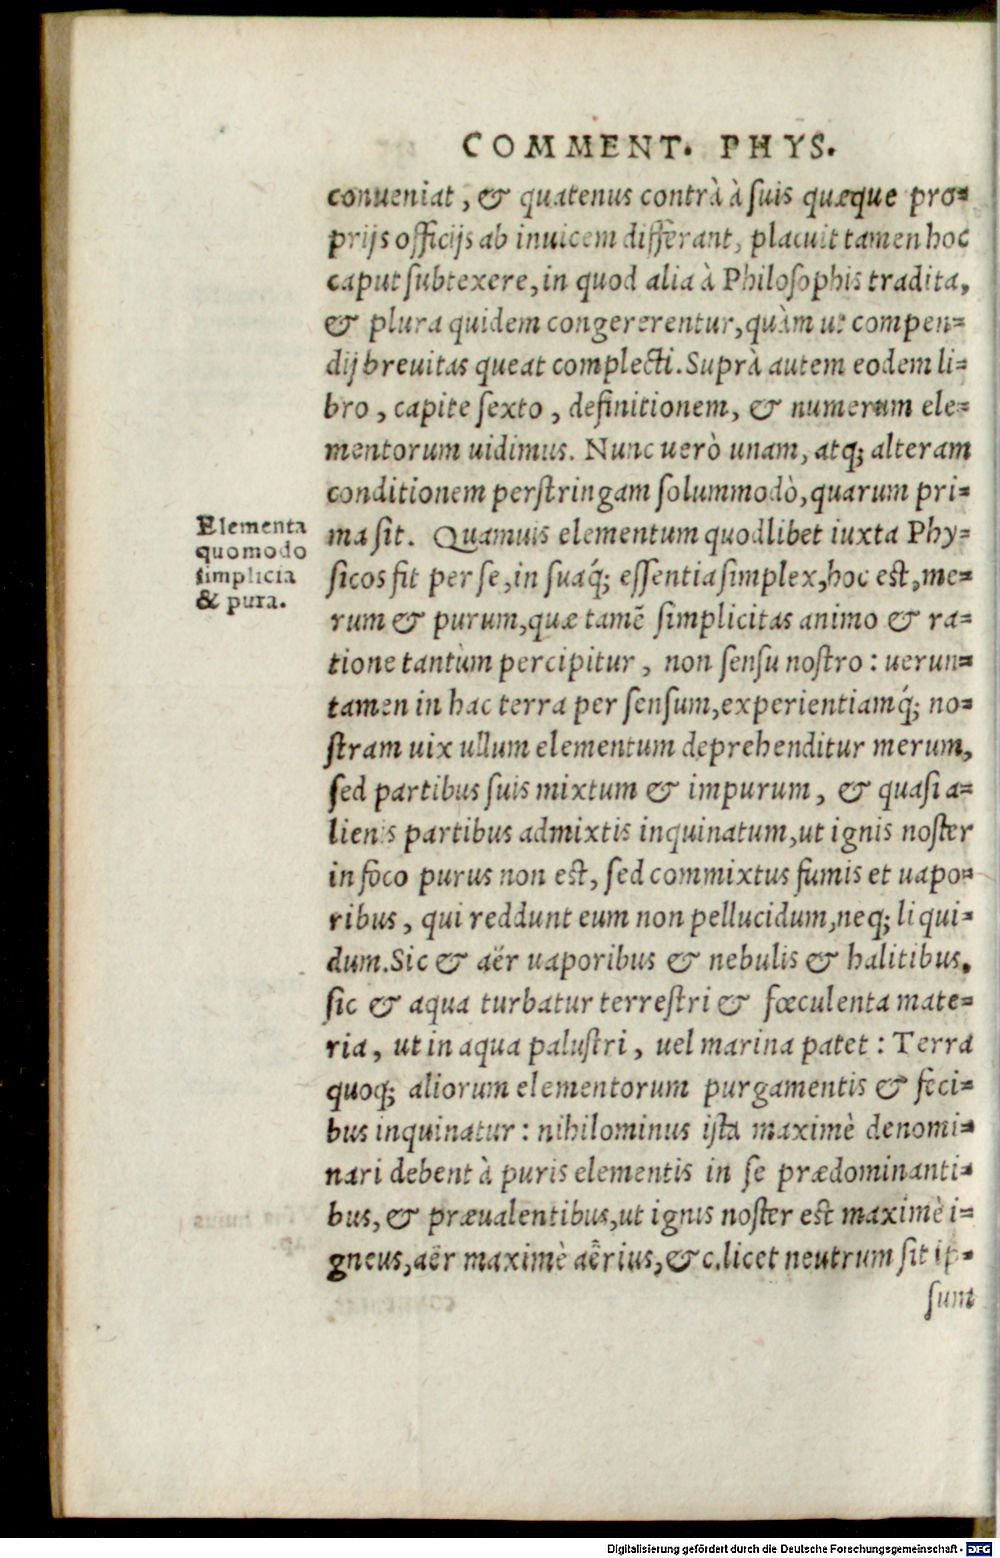 COMMENT. PHYS.
conueniat, & quatenus contrà à suis quæque pro-
prijs officijs ab inuicem differant, placuit tamen hoc
caput subtexere, in quod alia à Philosophis tradita,
& plura quidem congererentur, quàm ut compen-
dij breuitas queat complecti. Suprà autem eodem li-
bro, capite sexto, definitionem, & numerum ele-
mentorum uidimus. Nunc uerò unam, atq; alteram
conditionem perstringam solummodò, quarum pri-
Elementa
quomodo
simplicia
& pura.
ma sit. Quamuis elementum quodlibet iuxta Phy-
sicos fit per se, in suaq́; essentia simplex, hoc est, me-
rum & purum, quæ tamẽ simplicitas animo & ra-
tione tantùm percipitur, non sensu nostro: uerun-
tamen in hac terra per sensum, experientiamq́; no-
stram uix ullum elementum deprehenditur merum,
sed partibus suis mixtum & impurum, & quasi a-
lienis partibus admixtis inquinatum, ut ignis noster
in foco purus non est, sed commixtus fumis et uapo-
ribus, qui reddunt eum non pellucidum, neq; liqui-
dum. Sic & aër uaporibus & nebulis & halitibus,
sic & aqua turbatur terrestri & fœculenta mate-
ria, ut in aqua palustri, uel marina patet: Terra
quoq; aliorum elementorum purgamentis & feci-
bus inquinatur: nihilominus ista maximè denomi-
nari debent à puris elementis in se prædominanti-
bus, & præualentibus, ut ignis noster est maximè i-
gneus, aër maximè aërius, & c. licet neutrum sit ip-
sum
Digitalisierung gefördert durch die Deutsche Forschungsgemeinschaft - DFG